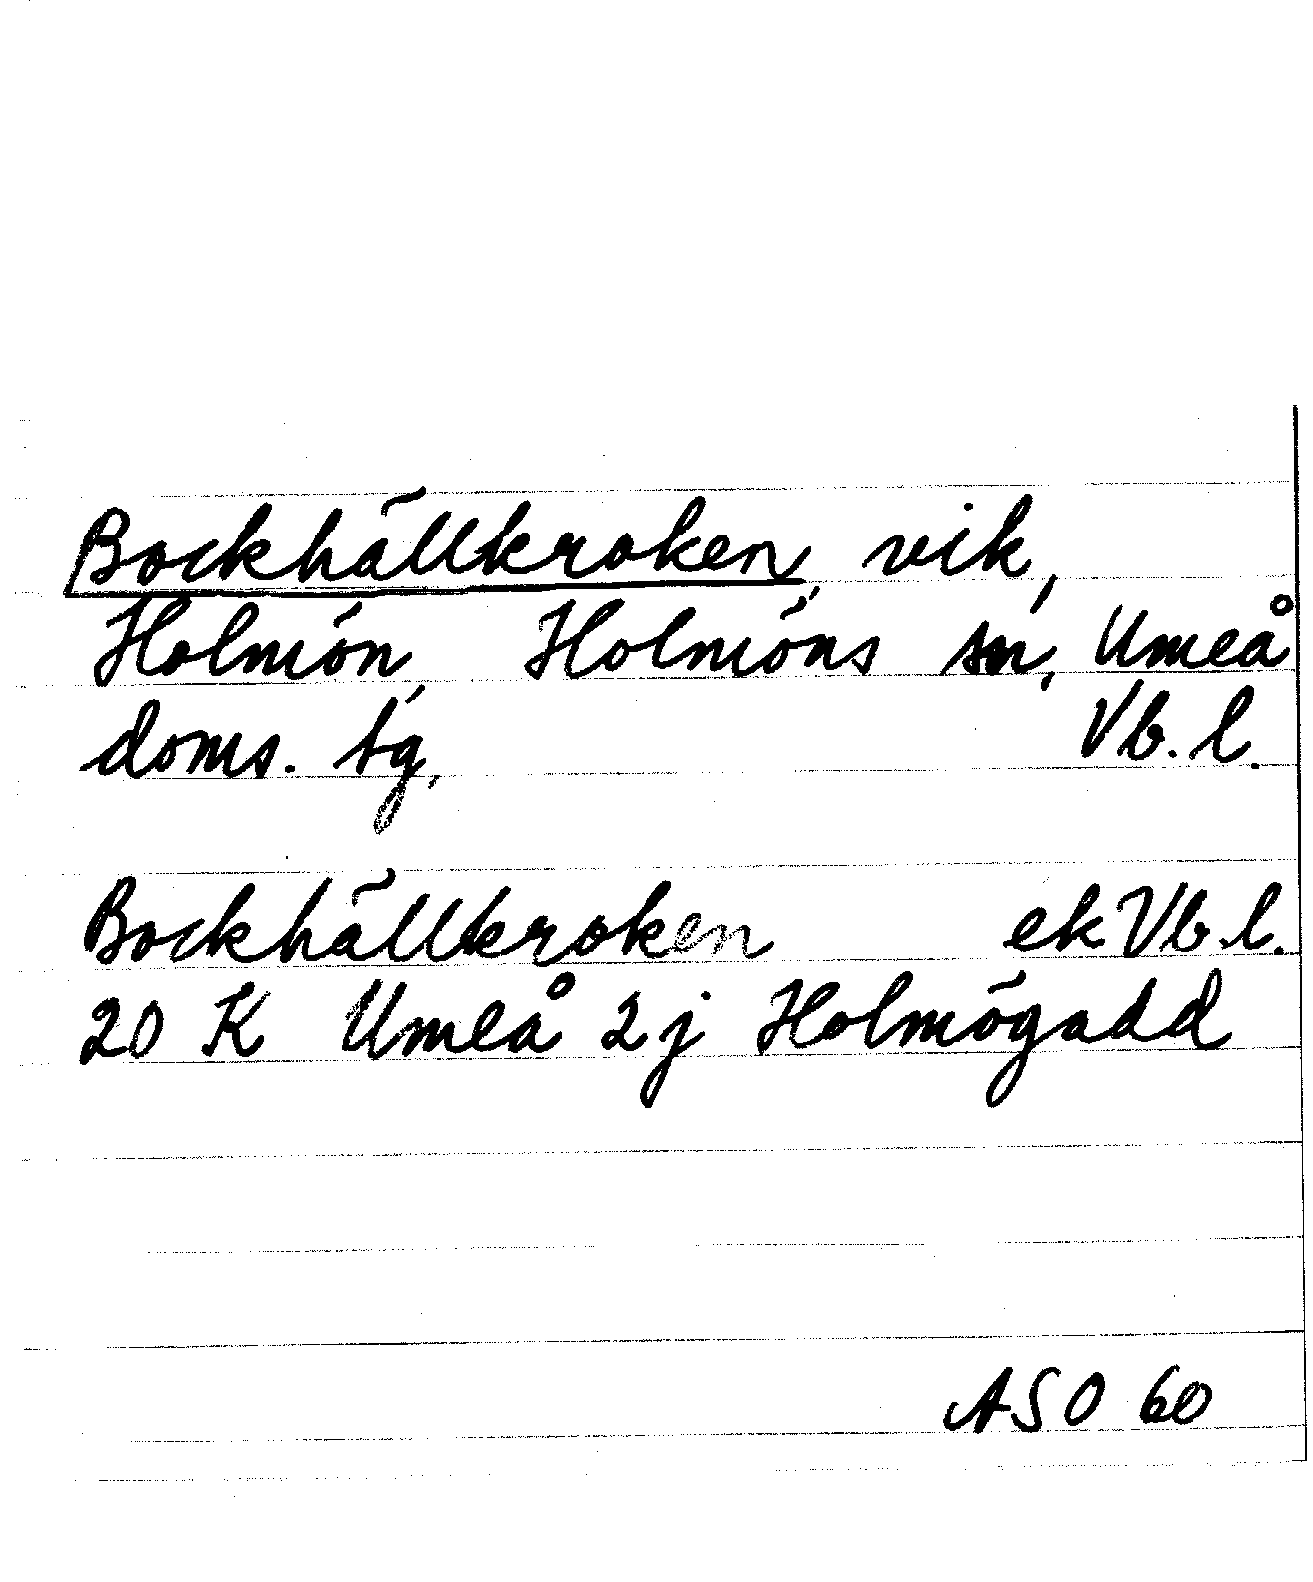 Bockhällkroken, vik,
Holmön, Holmöns sn, Umeå
doms. tg, Vb. l.
Bockhällkroken ek Vb. l.
20 K Umeå 2j Holmögadd
ASO 60